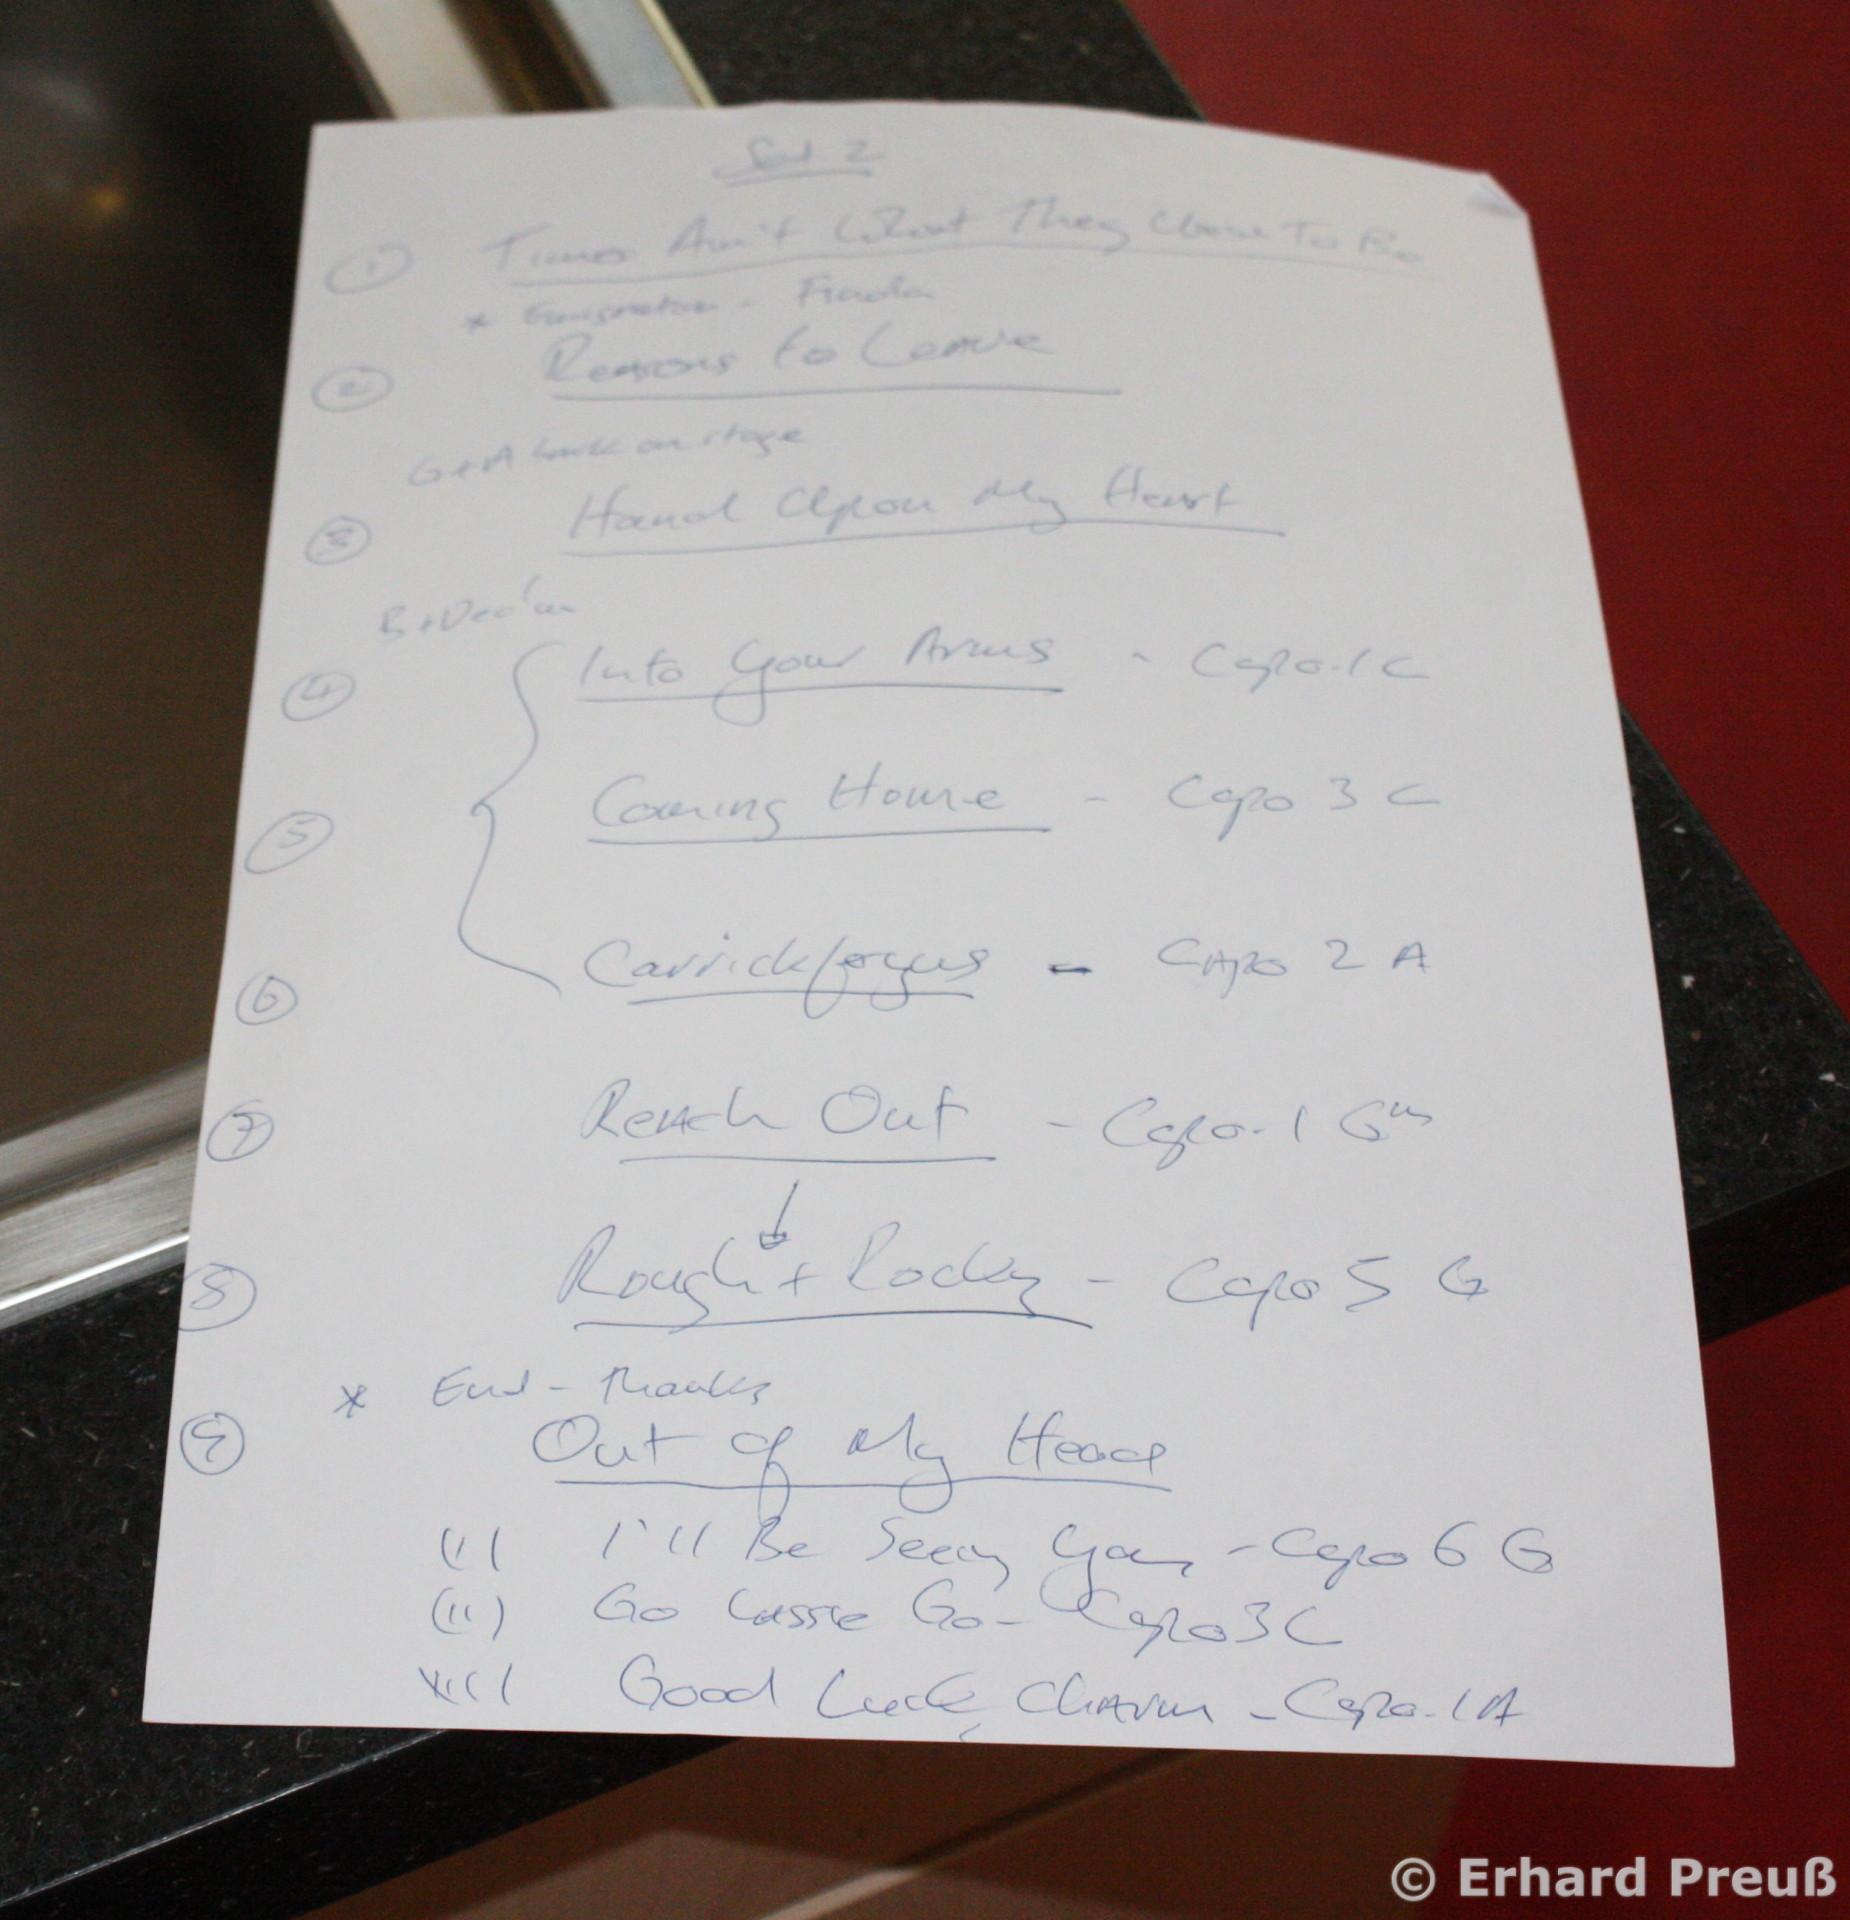 Set 2
① Times Ain't What They Used To Be
* Emigration -
② Reasons to Leave
G+A back on stage
③ Hand Upon My Heart
B+Declan
④ Into Your Arms - Capo 1 C
⑤ Coming Home - Capo 3 C
⑥ Carrickfergus - Capo 2 A
⑦ Reach Out - Capo 1 Gm
↓
⑧ Rough + Rocky - Capo 5 G
* End - Thanks
⑨ Out of My Head
(i) I'll Be Seeing You - Capo 6 G
(ii) Go Lassie Go - Capo 3 C
(iii) Good Luck Charm - Capo 1 A
© Erhard Preuß